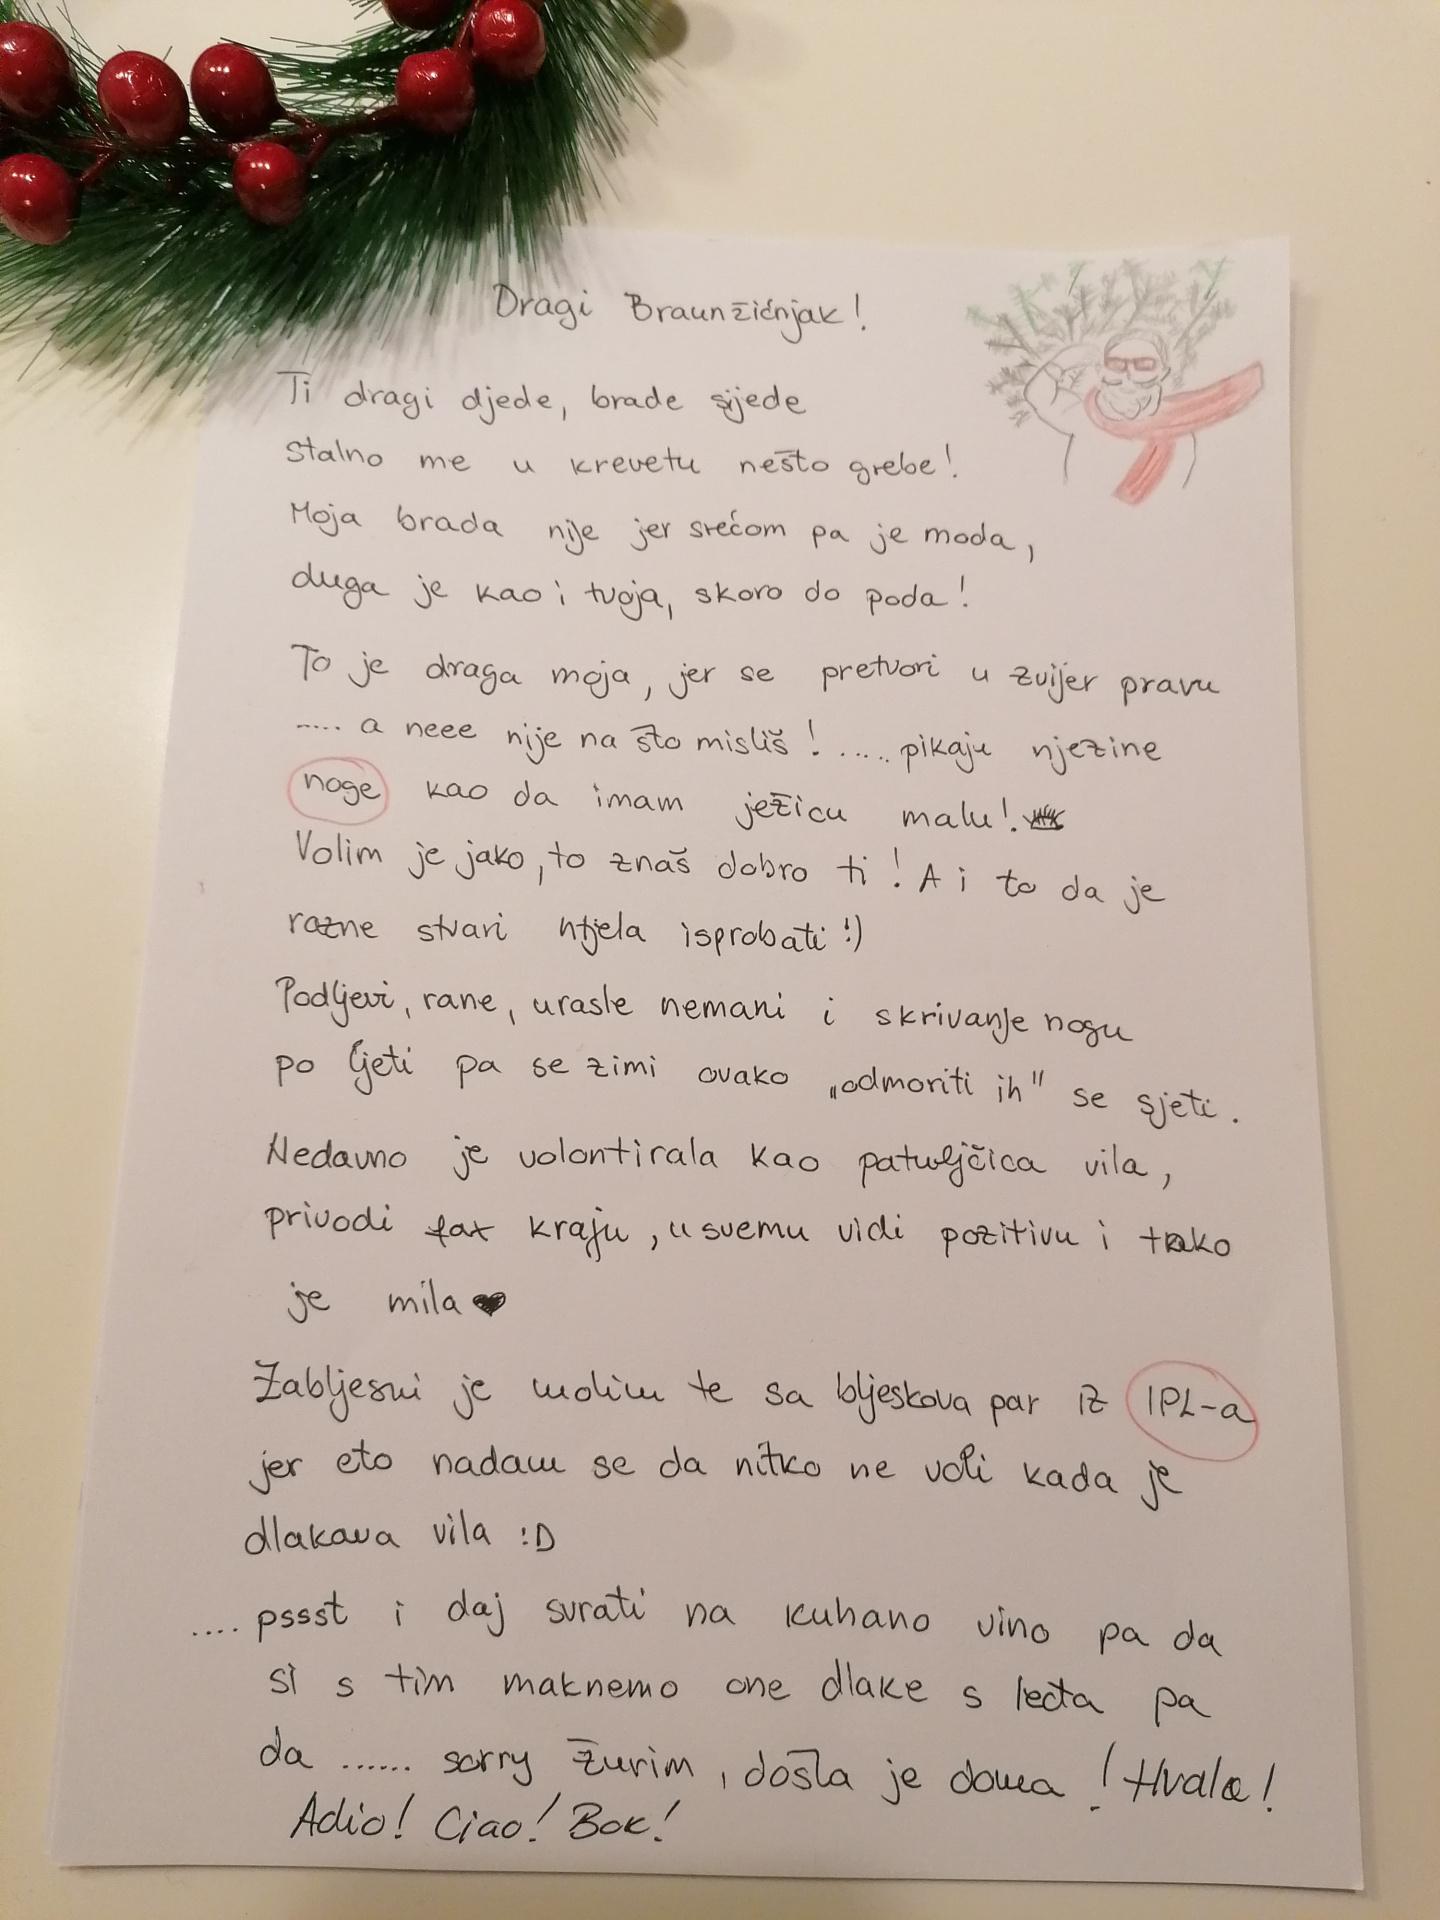 Dragi Braunžićnjak!
Ti dragi djede, brade sijede
stalno me u krevetu nešto grebe!
Moja brada nije jer srećom pa je moda,
duga je kao i tvoja, skoro do poda!
To je draga moja, jer se pretvori u zvijer pravu
..... a neee nije na što misliš! ..... pikaju njezine
noge kao da imam ježicu malu!
Volim je jako, to znaš dobro ti! A i to da je
razne stvari htjela isprobati!:)
Podljevi, rane, urasle nemani i skrivanje nogu
po ljeti pa se zimi ovako „odmoriti ih" se sjeti.
Nedavno je volontirala kao patuljčica vila,
privodi fax kraju, u svemu vidi pozitivu i tako
je mila ♥
Zabljesni je molim te sa bljeskova par iz IPL-a
jer eto nadam se da nitko ne voli kada je
dlakava vila :D
.... pssst i daj svrati na kuhano vino pa da
si s tim maknemo one dlake s lećta pa
da ...... sorry žurim, došla je doma! Hvala!
Adio! Ciao! Bok!